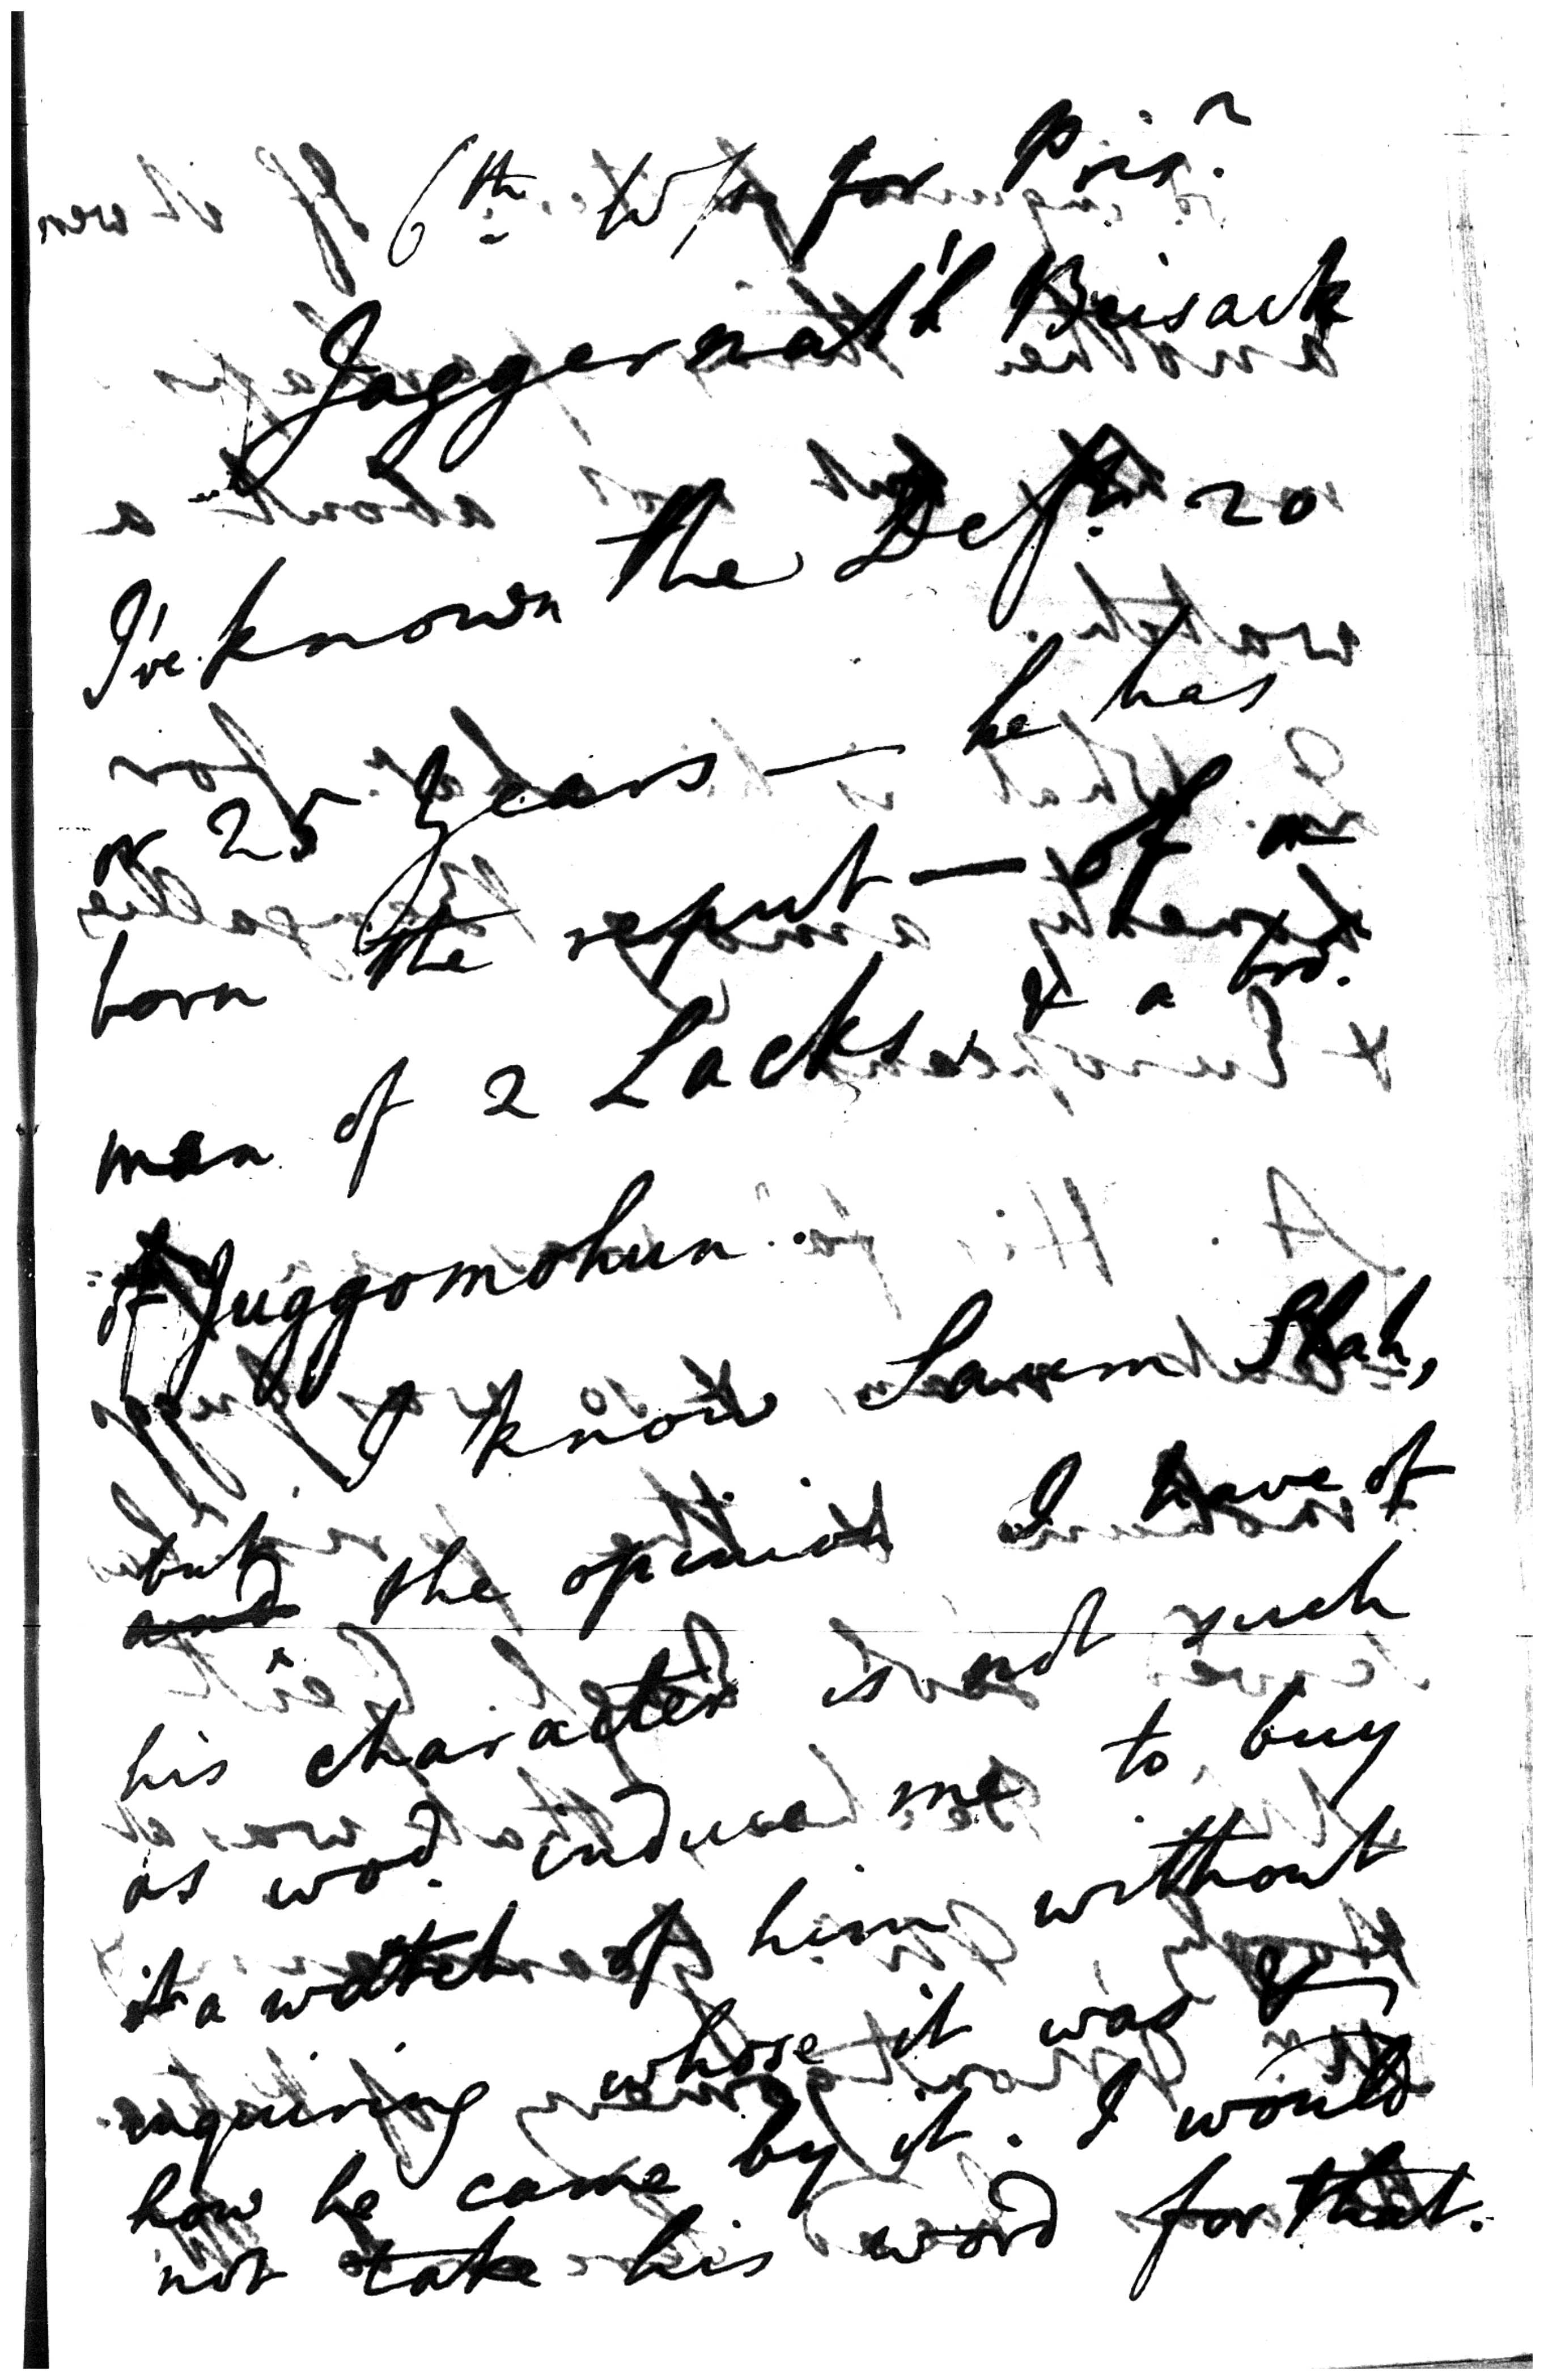 6th W/s for Pris.r
Jaggernat'h Beisack
I've known the Deft. 20
or 25 years — he has
born the repute — of a
man of 2 Lacks, & a bro.r
of Juggomohun.
I know Saum Shah,
but
and the opinion I have of
his character is not such
as wod. induce me to buy
it a watch of him without
inquiring whose it was &
how he came by it. I would
not take his word for that.